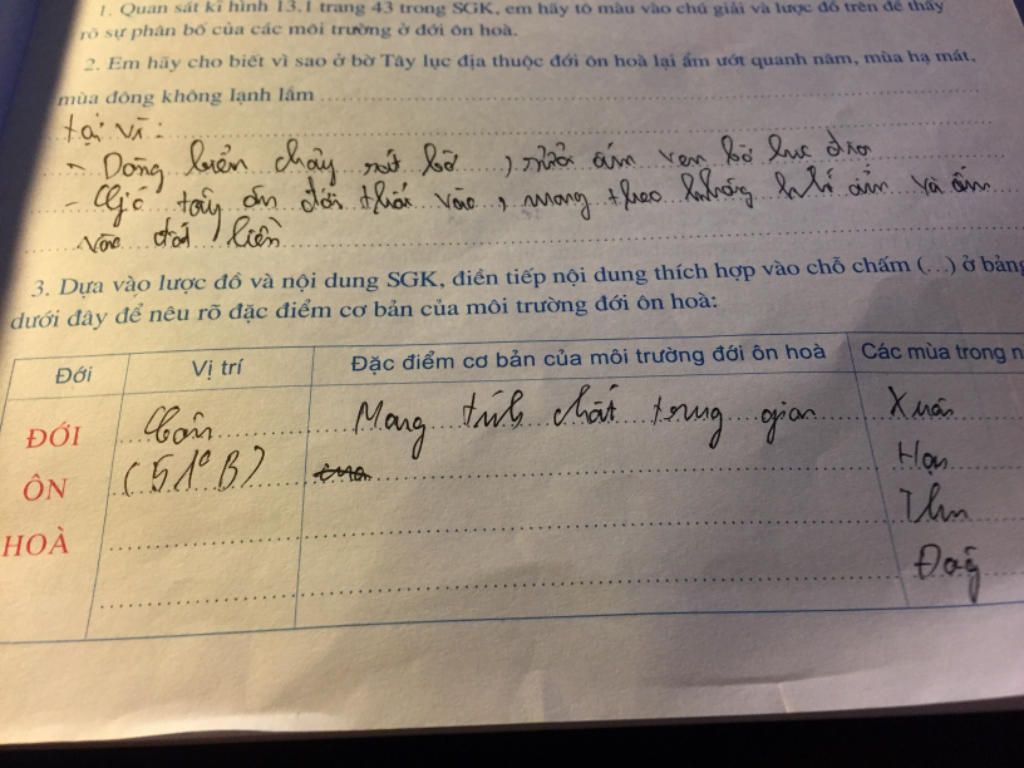 1. Quan sát kĩ hình 13.1 trang 43 trong SGK, em hãy tô màu vào chú giải và lược đồ trên để thấy
rõ sự phân bố của các môi trường ở đới ôn hoà.
2. Em hãy cho biết vì sao ở bờ Tây lục địa thuộc đới ôn hoà lại ẩm ướt quanh năm, mùa hạ mát,
mùa đông không lạnh lắm
tại vì:
- Dòng biển chảy sát bờ, sưởi ấm ven bờ lục địa
- Gió tây ôn đới thổi vào, mang theo không khí ẩm và ấm
vào đất liền
3. Dựa vào lược đồ và nội dung SGK, điền tiếp nội dung thích hợp vào chỗ chấm (...) ở bảng
dưới đây để nêu rõ đặc điểm cơ bản của môi trường đới ôn hoà:
Đới Vị trí Đặc điểm cơ bản của môi trường đới ôn hoà Các mùa trong
ĐỚI Mang tính chất trung gian Xuân
ÔN (51°B) Hạ
HOÀ Thu
Đông